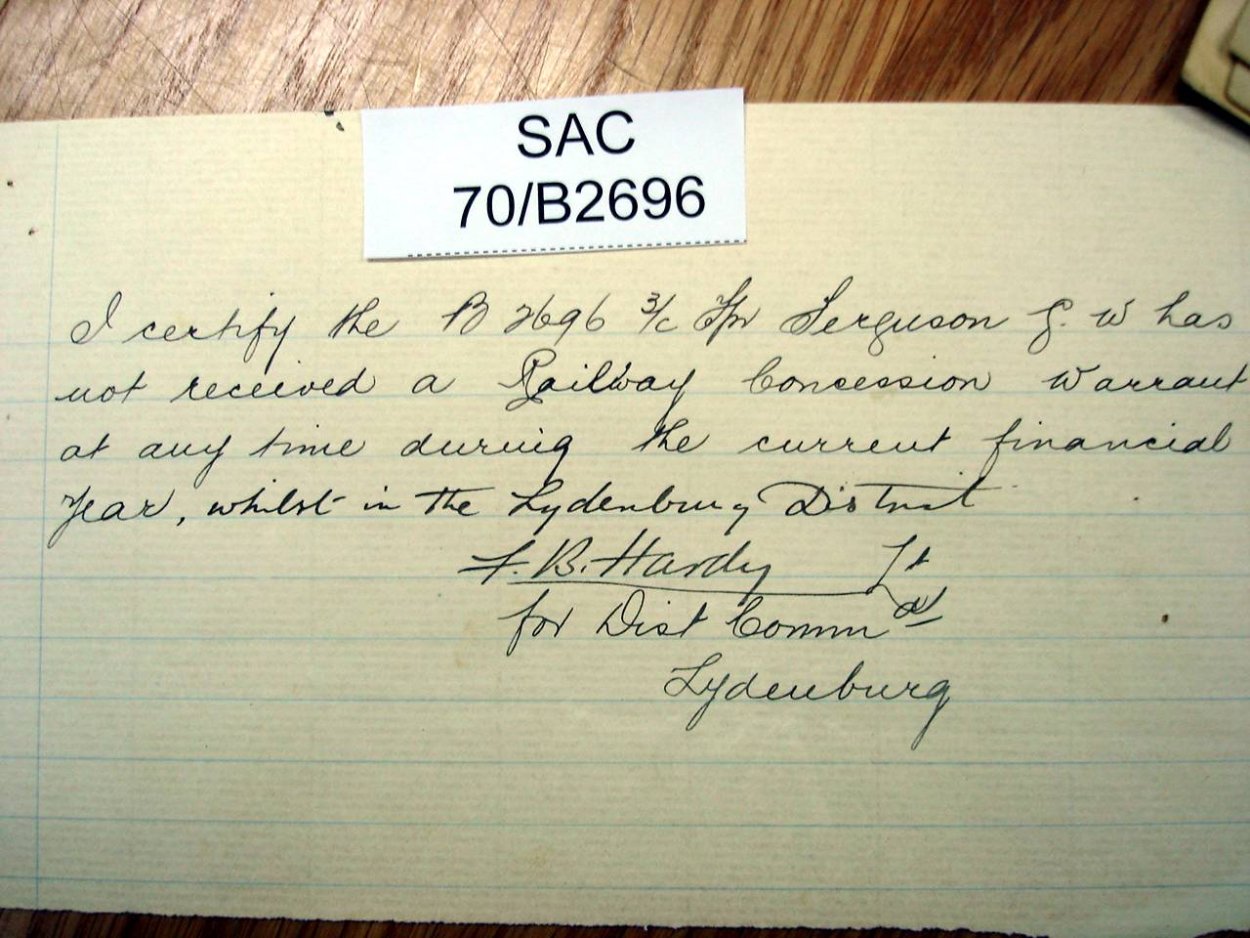 SAC
70/B2696
I certify the B 2696 3/c Tpr Ferguson G. W has
not received a Railway Concession Warrant
at any time during the current financial
Year, whilst in the Lydenburg District
F. B. Hardy Lt
for Dist Commdt
Lydenburg